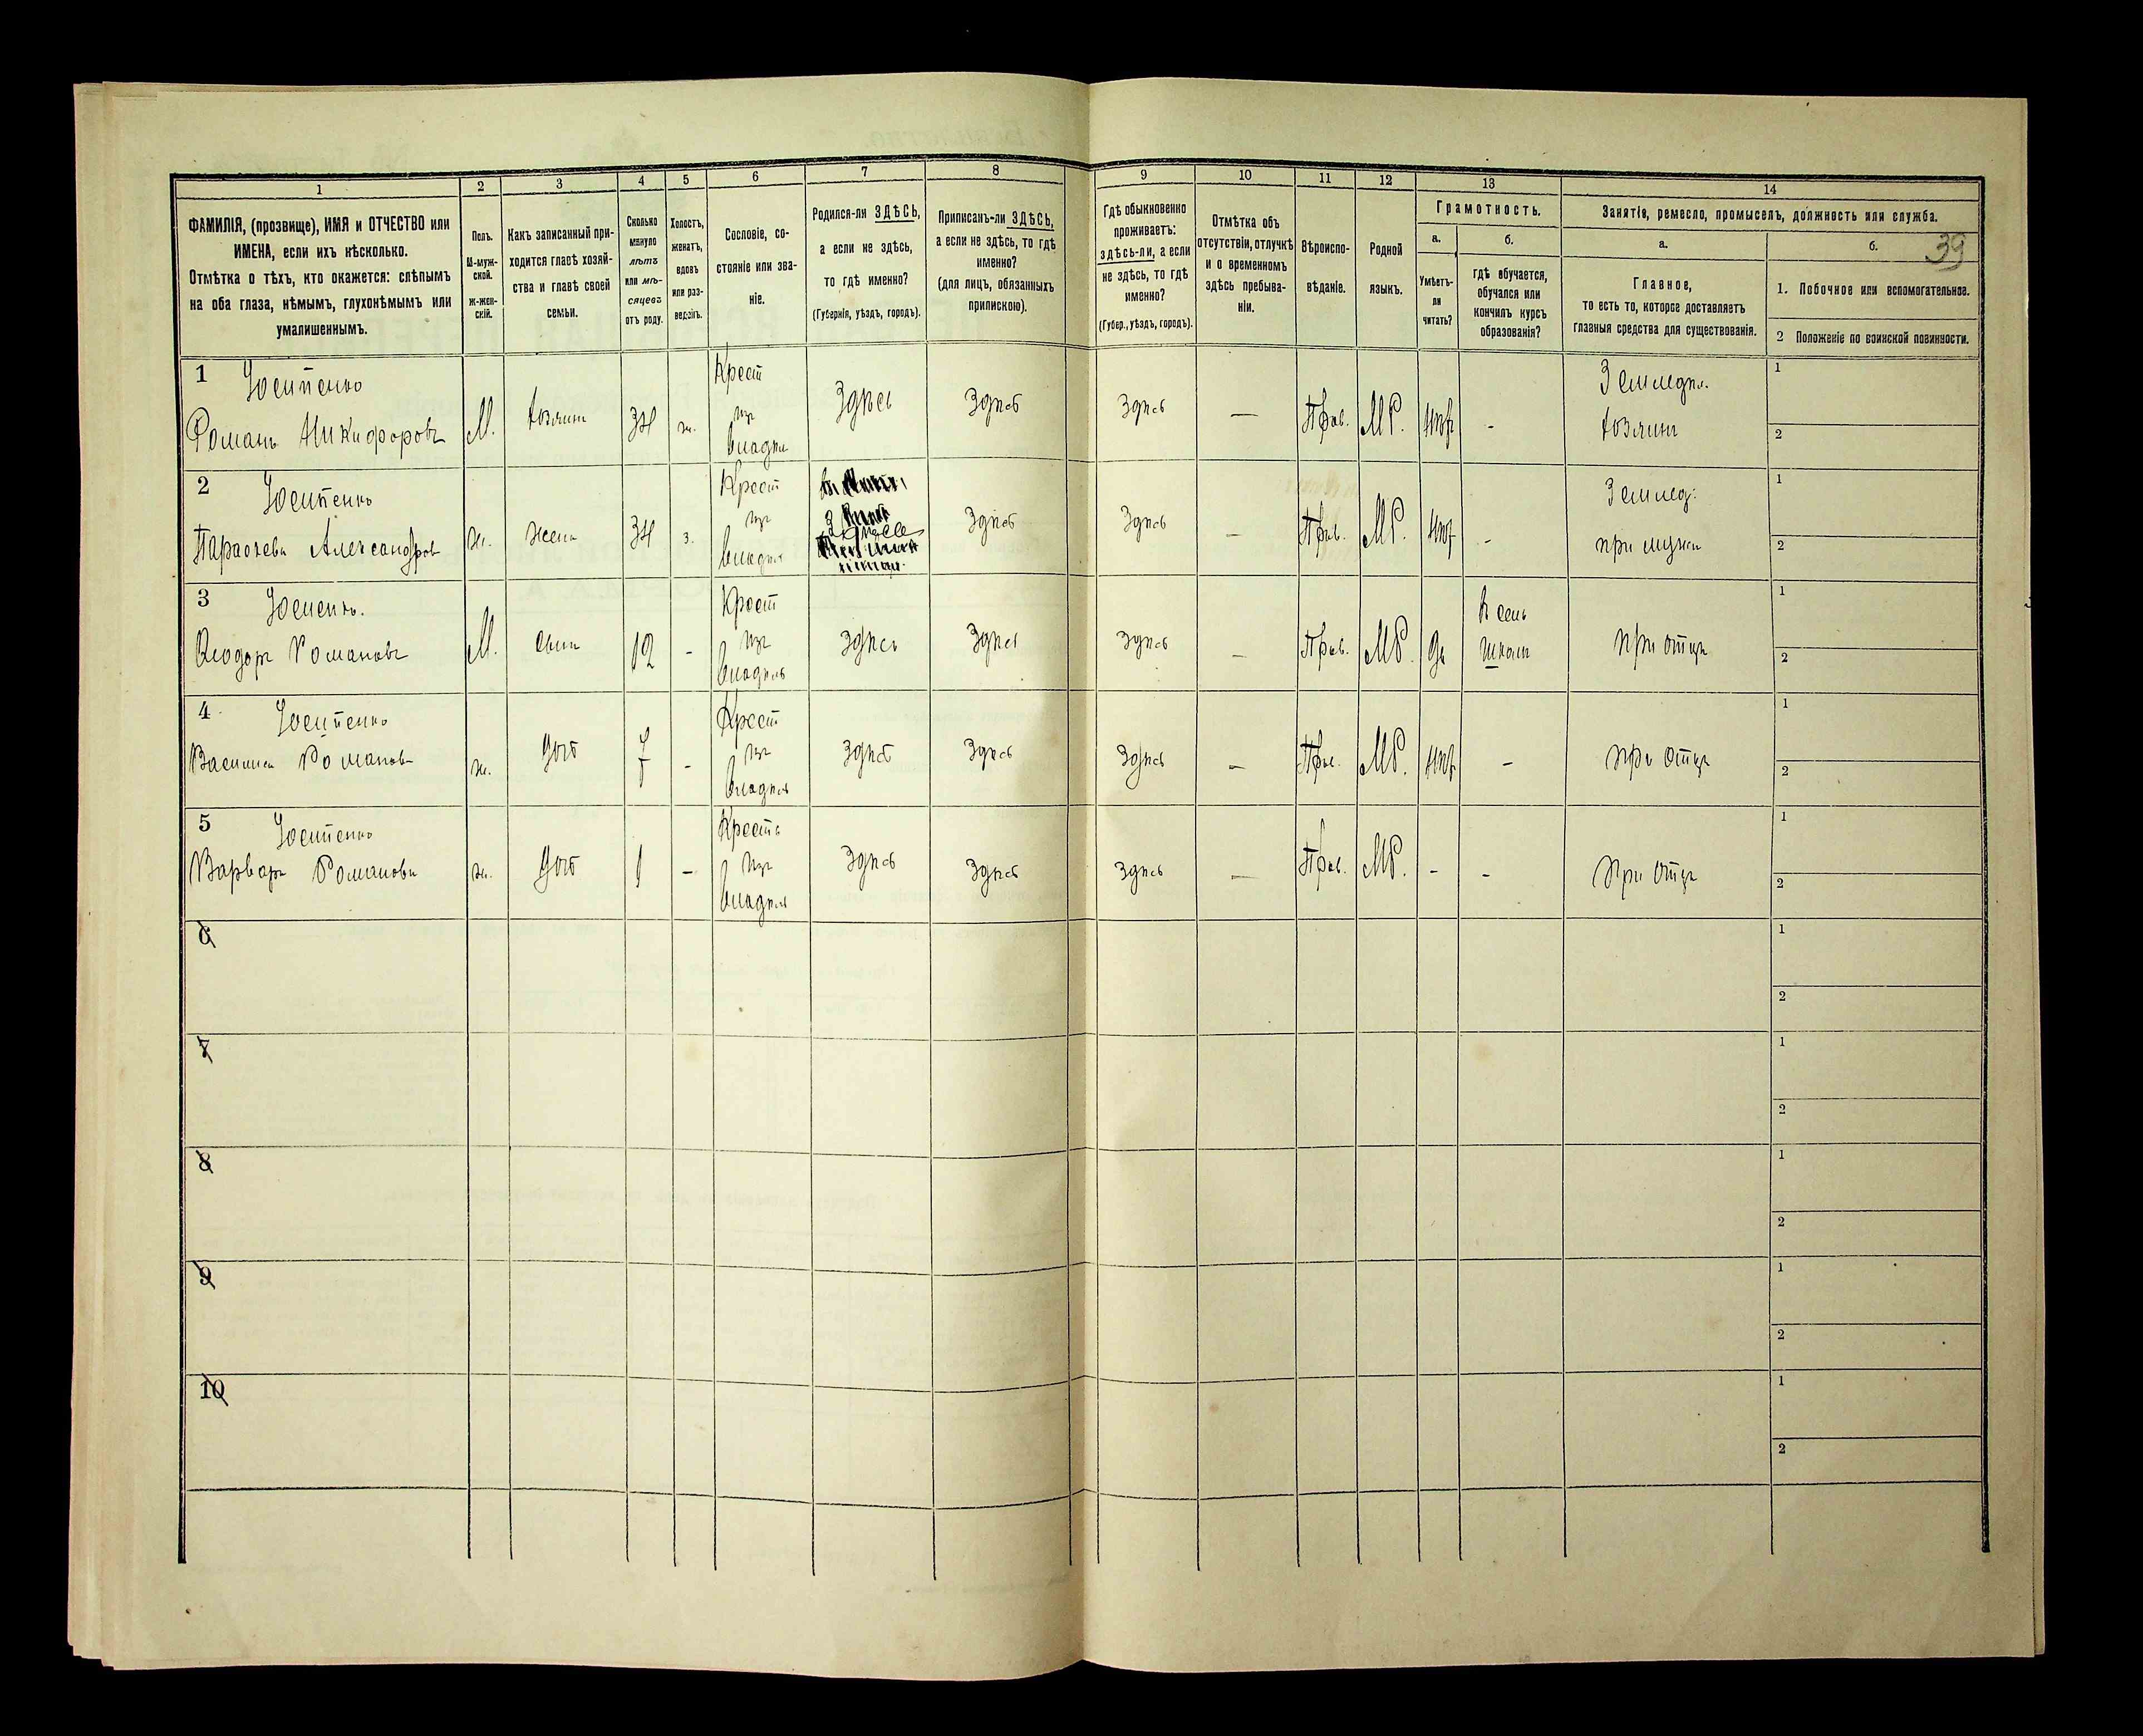 39
1 2 3 4 5 6 7 8 9 10 11 12 13 14
ФАМИЛІЯ, (прозвище), ИМЯ и ОТЧЕСТВО или
ИМЕНА, если ихъ нѣсколько.
Отмѣтка о тѣхъ, кто окажется: слѣпымъ
на оба глаза, нѣмымъ, глухонѣмымъ или
умалишеннымъ.
Полъ.
М-муж-
ской.
ж-жен-
скій.
Какъ записанный при-
ходится главѣ хозяй-
ства и главѣ своей
семьи.
Сколько
минуло
лѣтъ
или мѣ-
сяцевъ
отъ роду.
Холостъ,
женатъ,
вдовъ
или раз-
веденъ.
Сословіе, со-
стояніе или зва-
ніе.
Родился-ли ЗДѢСЬ,
а если не здѣсь,
то гдѣ именно?
(Губернія, уѣздъ, городъ).
Приписанъ-ли ЗДѢСЬ,
а если не здѣсь, то гдѣ
именно?
(для лицъ, обязанныхъ
припискою).
Гдѣ обыкновенно
проживаетъ:
здѣсь-ли, а если
не здѣсь, то гдѣ
именно?
(Губер., уѣздъ, городъ).
Отмѣтка объ
отсутствіи, отлучкѣ
и о временномъ
здѣсь пребыва-
ніи.
Вѣроиспо-
вѣданіе.
Родной
языкъ.
Грамотность.
а.
Умѣетъ-
ли
читать?
б.
гдѣ обучается,
обучался или
кончилъ курсъ
образованія?
Занятіе, ремесло, промыселъ, должность или служба.
а.
Главное,
то есть то, которое доставляетъ
главныя средства для существованія.
б.
1. Побочное или вспомогательное.
2 Положеніе по воинской повинности.
1 Юсипенко
Романъ Никифоровъ
М.
хозяинъ
34
ж.
Крест
изъ
владѣл
Здѣсь
Здѣсь
Здѣсь
—
Прав.
МР.
-
Земледѣл.
хозяинъ
1
2
2 Юсипенко
Параскева Александров
ж.
жена
34
з.
Крест
изъ
владѣл
Здѣсь
Здѣсь
—
Прав.
МР.
-
Земледѣ:
при мужѣ
1
2
3 Юсипенко.
Ѳеодоръ Романовъ
М.
сынъ
12
-
Крест
изъ
владѣль
здѣсь
Здѣсь
Здѣсь
—
Прав.
МР.
да
Школѣ
при отцѣ
1
2
4 Юсипенко
Василиса Романов
ж.
дочь
-
Крест
изъ
владѣль
Здѣсь
Здѣсь
Здѣсь
—
Прав.
МР.
-
при отцѣ
1
2
5 Юсипенко
Варвара Романова
ж.
дочь
1
-
Кресть
изъ
владѣль
Здѣсь
Здѣсь
Здѣсь
—
Прав.
МР.
-
-
При отцѣ
1
2
6
1
2
7
1
2
8
1
2
9
1
2
10
1
2